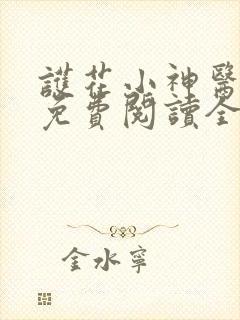 護花小神醫
免費閱讀全
金水寧